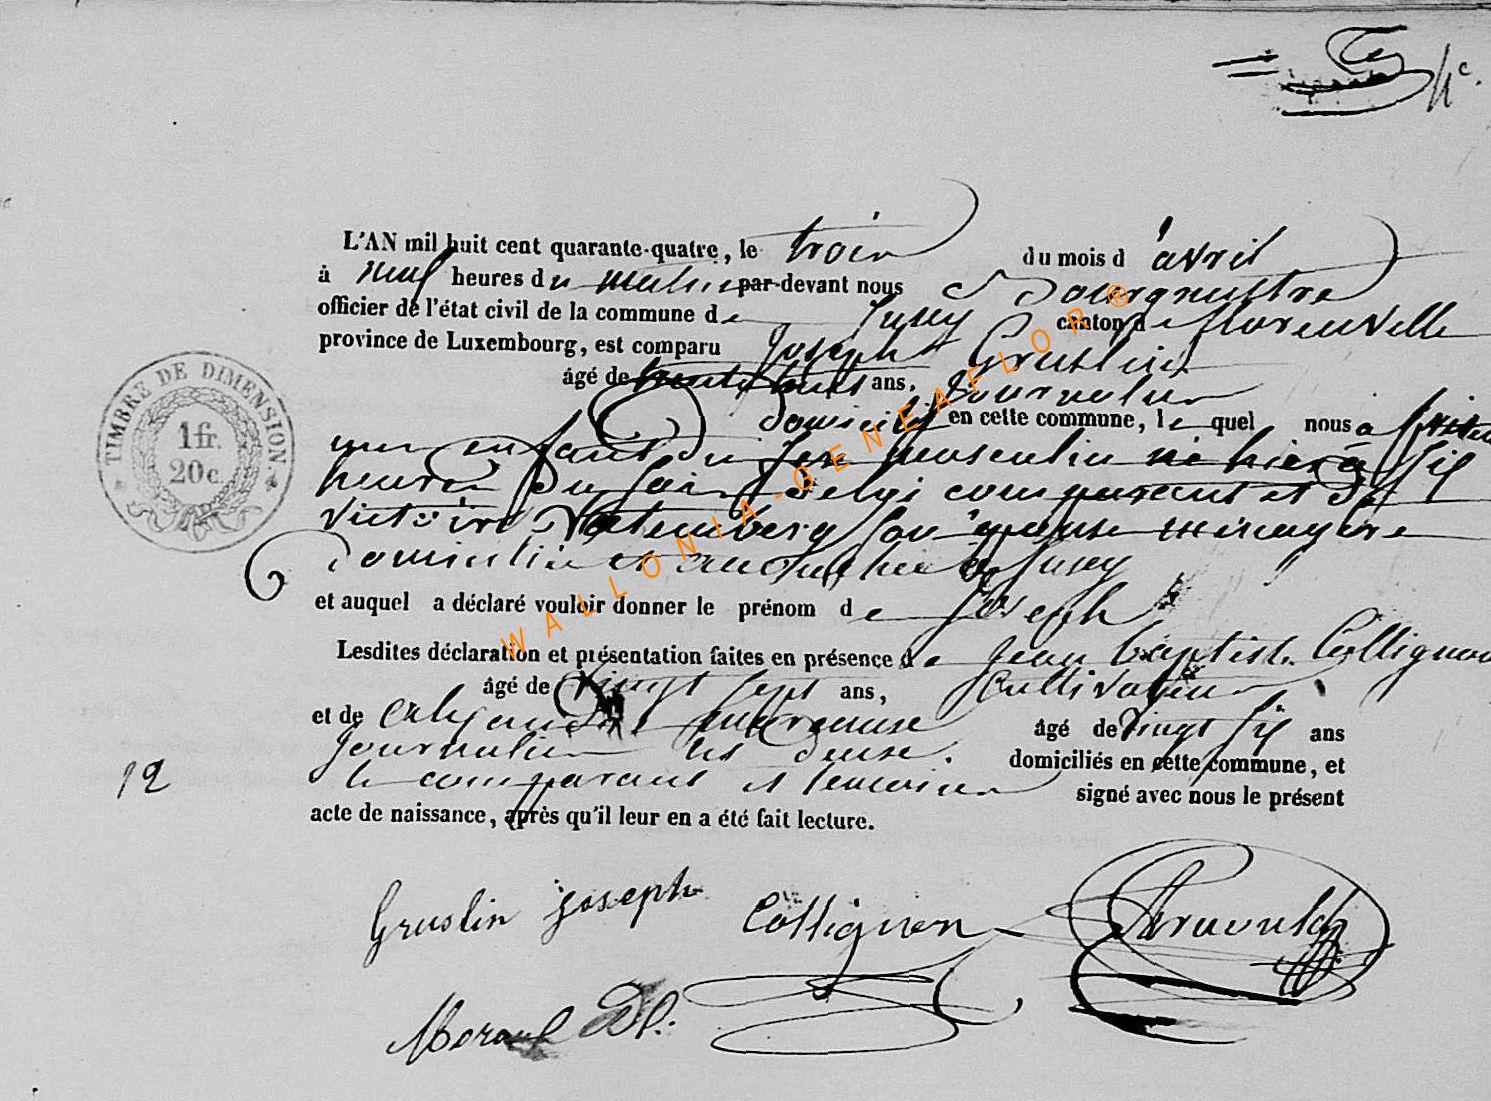 4c.
L'AN mil huit cent quarante-quatre, le trois du mois d'avril
à neuf heures du matin par-devant nous Bourgmestre
officier de l'état civil de la commune de Jusey canton de florenville
province de Luxembourg, est comparu Joseph Gruslin
âgé de trente huit ans, Journalier
domicilié en cette commune, lequel nous a
un enfant du sexe masculin né hier à six
heures du soir, de lui comparant et de
victoire son épouse ménagère
domiciliée à Jusey
et auquel a déclaré vouloir donner le prénom de Joseph
Lesdites déclaration et présentation faites en présence de Jean baptiste Collignon
âgé de vingt sept ans, Cultivateur
et de âgé de vingt six ans
journalier les deux domiciliés en cette commune, et
le comparant et témoins signé avec nous le présent
acte de naissance, après qu'il leur en a été fait lecture.
Gruslin joseph Collignon
TIMBRE DE DIMENSION.
1 fr.
20 c.
12
WALLONIA-GENEAFLOR®